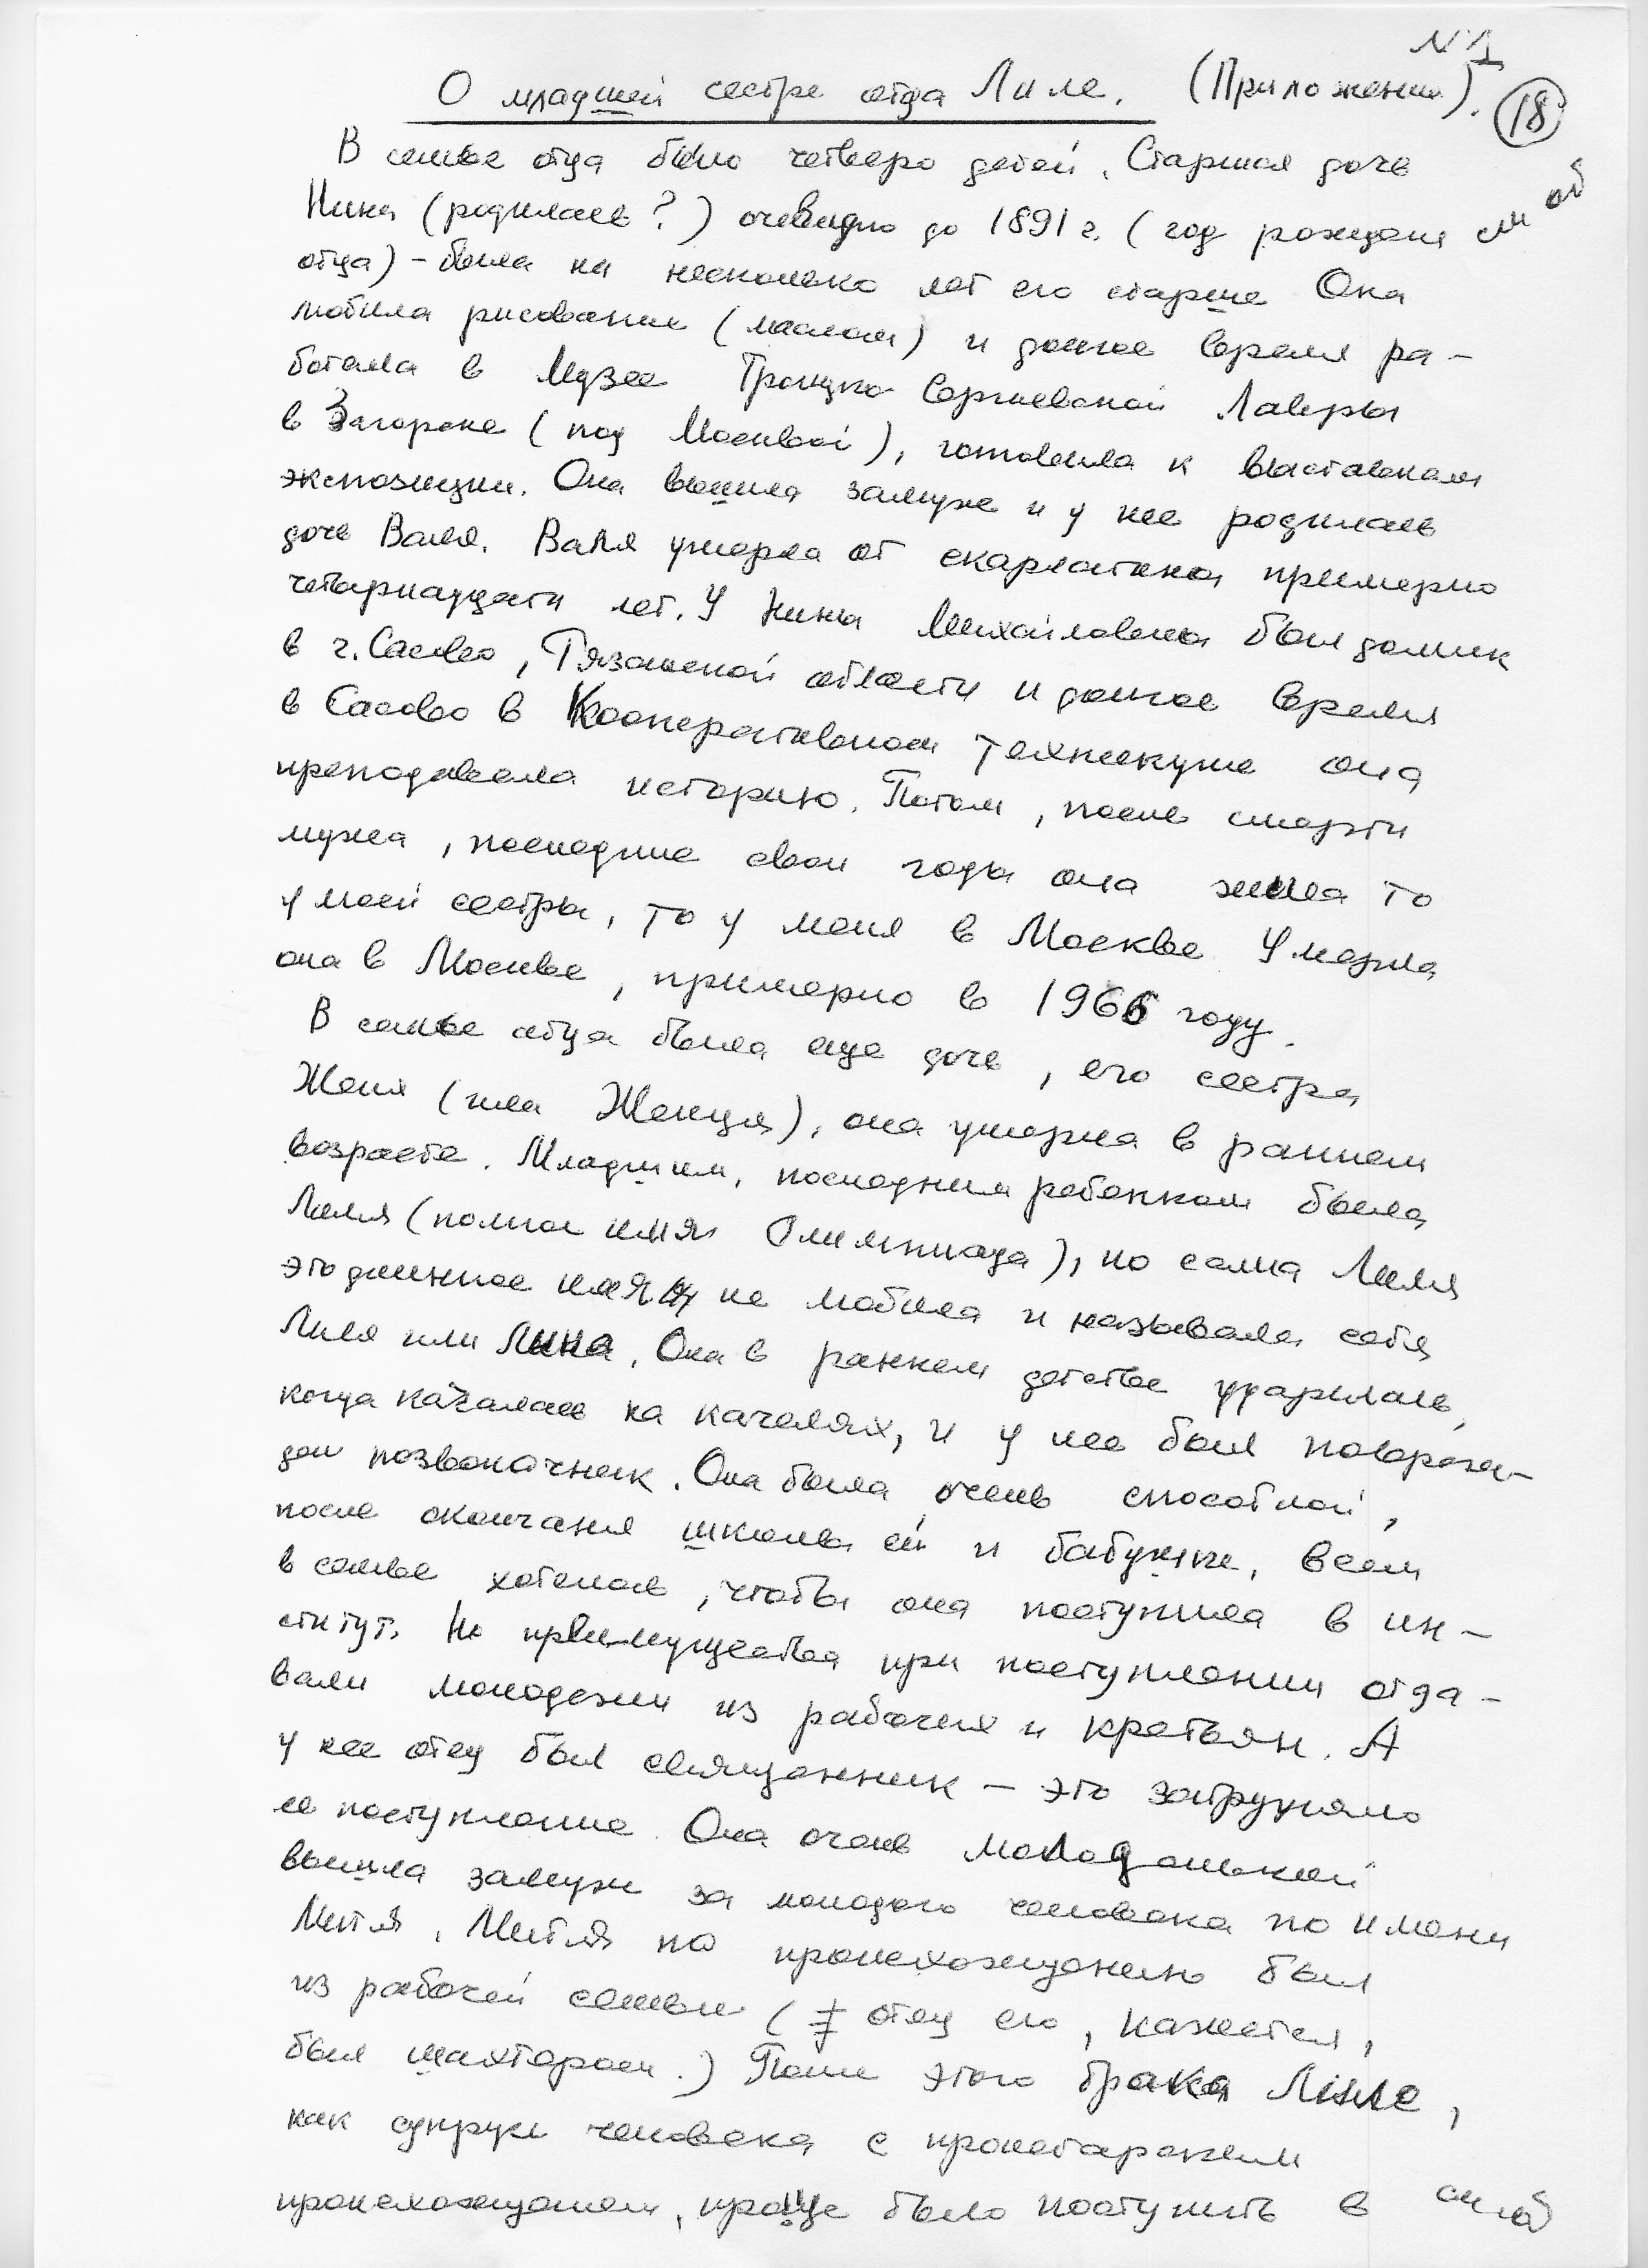 N 1
О младшей сестре отца Лиле. (Приложение).
18
В семье отца было четверо детей. Старшая дочь
Нина (родилась?) очевидно до 1891 г. (год рождения см об
отца) – была на несколько лет его старше Она
любила рисование (маслом) и долгое время ра-
ботала в Музее Троицко Сергиевской Лавры
в Загорске (под Москвой), готовила к выставкам
экспозиции. Она вышла замуж и у нее родилась
дочь Валя. Валя умерла от скарлатины примерно
четырнадцати лет. У Нины Михайловны был домик
в г. Сасово, Рязанской области и долгое время
в Сасово в Кооперативном техникуме она
преподавала историю. Потом, после смерти
мужа, последние свои годы она жила то
у моей сестры, то у меня в Москве Умерла
она в Москве, примерно в 1966 году.
В семье отца была еще дочь, его сестра
Женя (или Женця), она умерла в раннем
возрасте. Младшим, последним ребенком была
Лиля (полное имя Олимпиада), но сама Лиля
это длинное имя не любила и называла себя
Лиля или Лина. Она в раннем детстве ударилась,
когда качалась на качелях, и у нее был поврежд-
ден позвоночник. Она была очень способной,
после окончания школы ей и бабушке, всем
в семье хотелось, чтобы она поступила в ин-
ститут. Но преимущества при поступлении отда-
вали молодежи из рабочих и кретьян. А
у нее отец был священник – это затрудняло
ее поступление. Она очень молоденькой
вышла замуж за молодого человека по имени
Митя. Митя по происхождению был
из рабочей семьи (отец его, кажется,
был шахтером.) После этого брака Лиле,
как супруге человека с пролетарским
происхождением, проще было поступить в см об